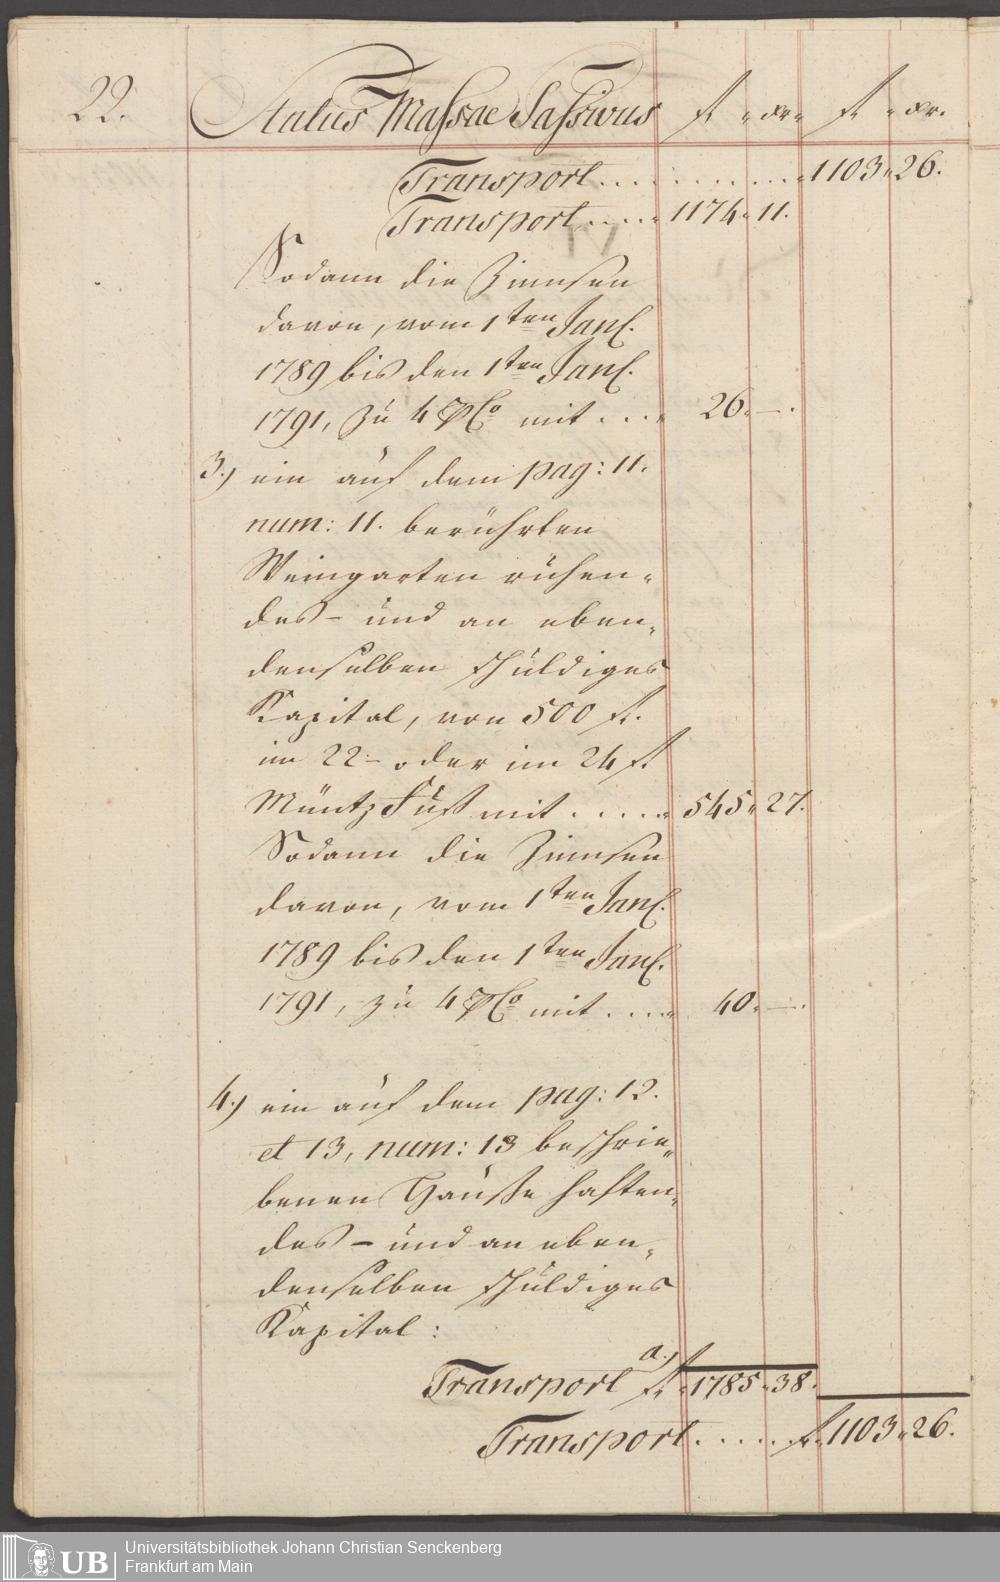 22. Status Massae Passivus ft „ xr „ ft „ xr.
Transport . . . . . . . . . . „ 1103 „ 26.
Transport . . . . „ 1174 „ 11.
Sodann die Zinnsen
davon, vom 1ten Jan.
1789 bis den 1ten Jan.
1791, zu 4 PCo mit . . . „ 26 „ —.
3.) ein auf dem pag: 11.
num: 11. berührten
Weingarten ruhen„
des – und an eben„
denselben schuldiges
Kapital, von 500 ft.
im 22 – oder im 24 ft
Müntz Fuß mit . . . . . „ 545 „ 27.
Sodann die Zinnsen
davon, vom 1ten Jan.
1789 bis den 1ten Jan.
1791, zu 4 PCo mit . . . . „ 40 „ —.
4.) ein auf dem pag: 12.
et 13, num: 13 beschrie„
benen Hauße haften„
des – und an eben„
denselben schuldiges
Kapital:
a.)
Transport ft „ 1785 „ 38.
Transport . . . . . ft. 1103 „ 26.
UB
Universitätsbibliothek Johann Christian Senckenberg
Frankfurt am Main